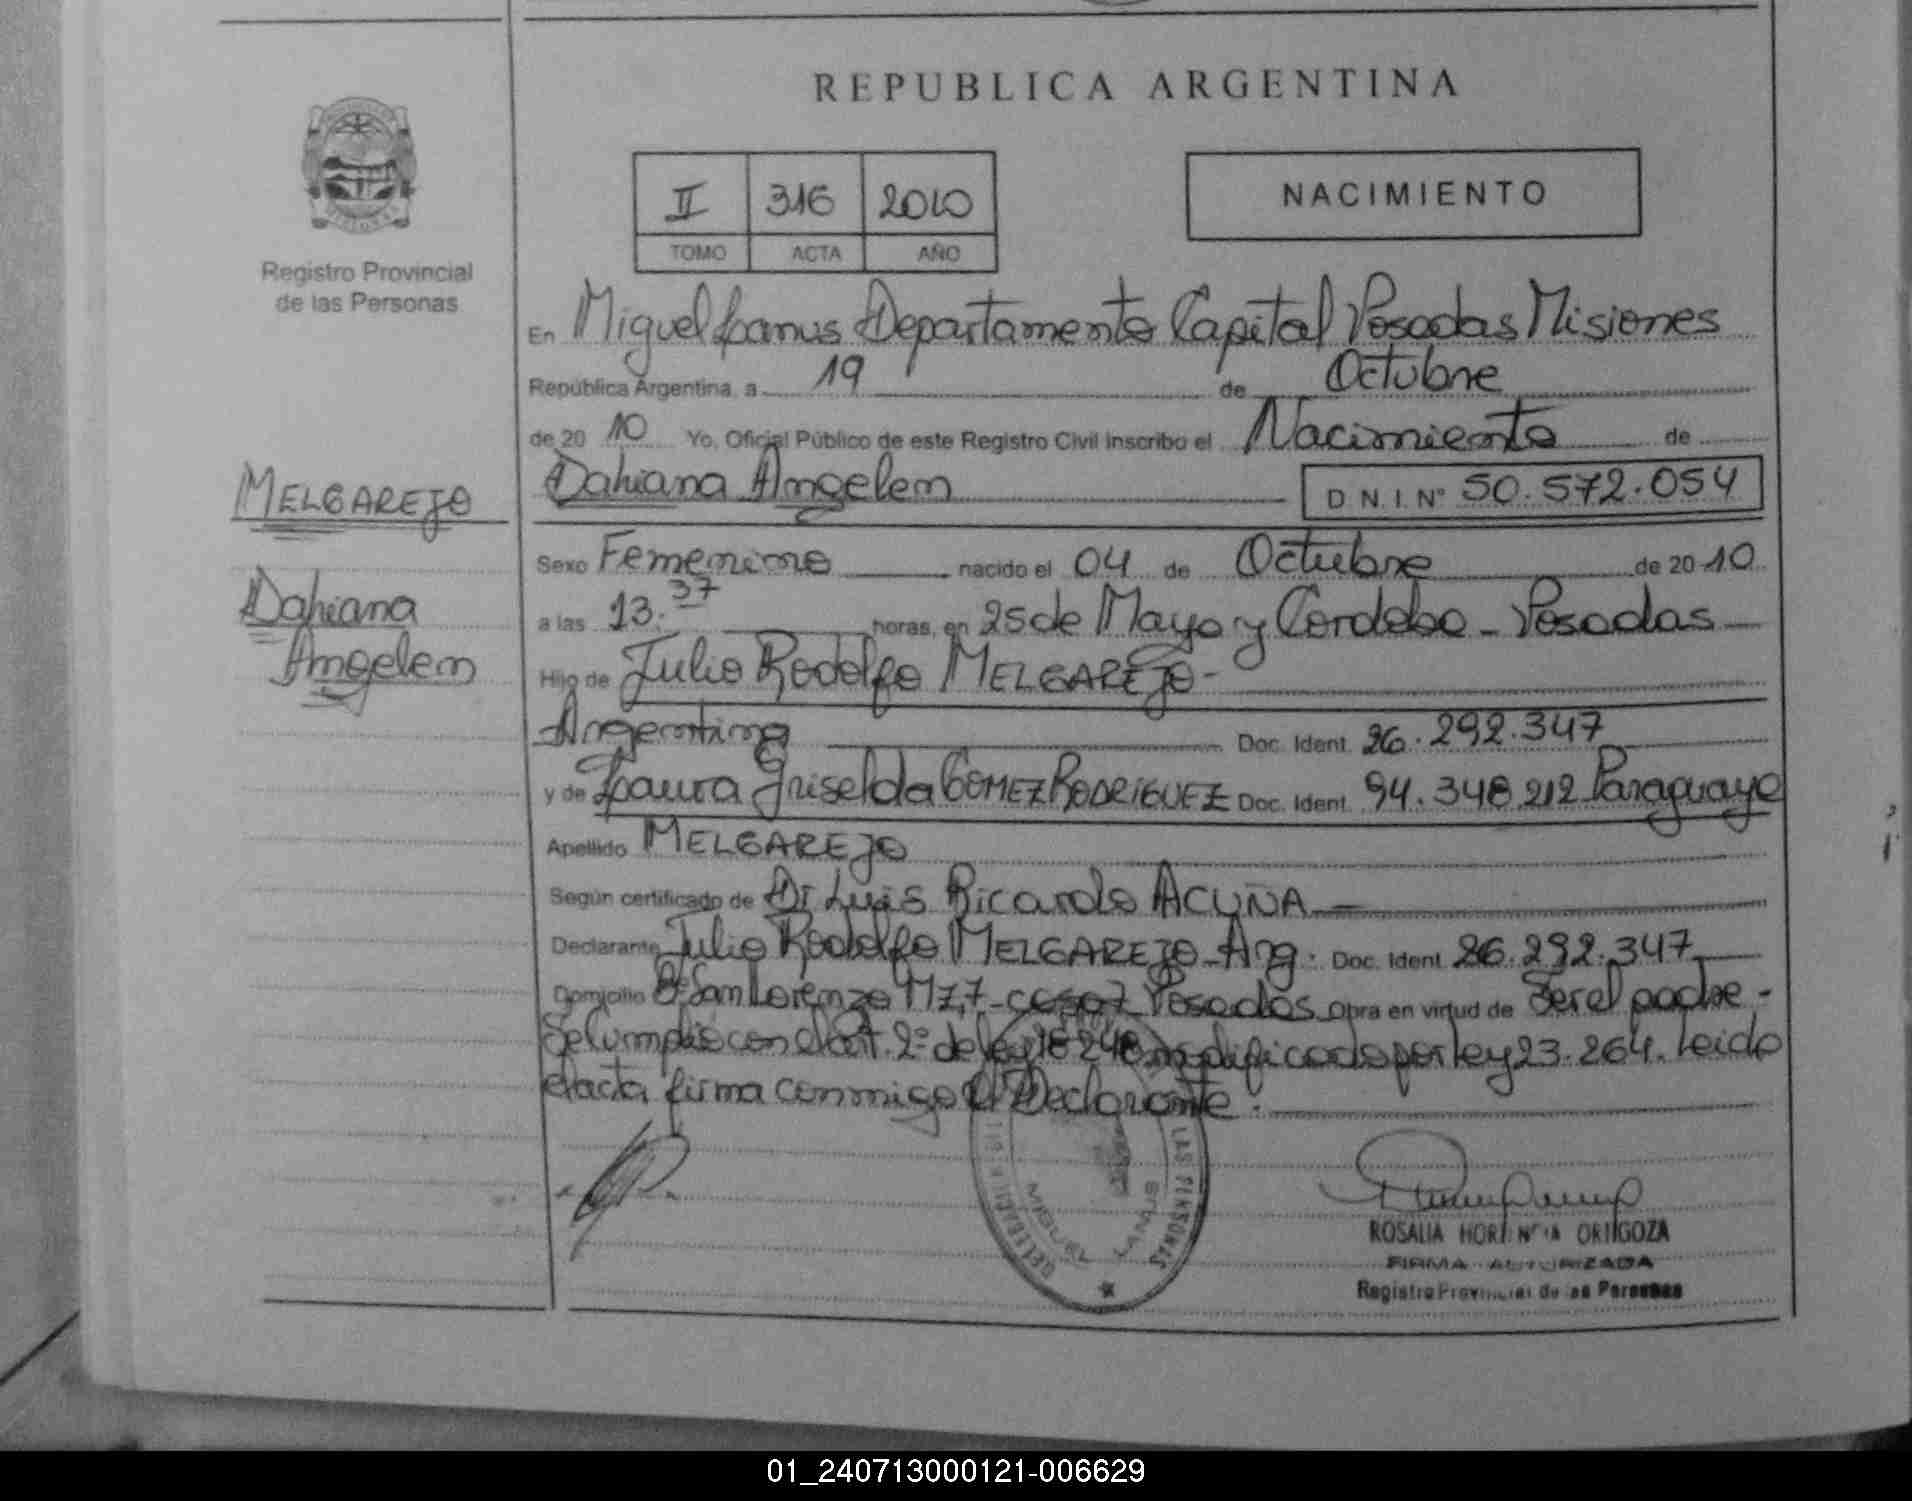 REPUBLICA ARGENTINA
II 316 2010
TOMO ACTA AÑO
NACIMIENTO
Registro Provincial
de las Personas
En Miguel Lanus Departamento Capital Posadas Misiones
República Argentina, a 19 de Octubre
de 20 10 Yo, Oficial Público de este Registro Civil inscribo el Nacimiento de
MELGAREJO
Dahiana Angelen
Dahiana Angelen D.N.I. Nº 50.572.054
Sexo Femenino nacido el 04 de Octubre de 20 10
a las 13.37 horas, en 25 de Mayo y Cordoba - Posadas
Hijo de Julio Rodolfo MELGAREJO -
Argentina Doc. Ident. 26.292.347
y de Laura Griselda GOMEZ RODRIGUEZ Doc. Ident. 94.348.212 Paraguaya
Apellido MELGAREJO
Según certificado de Dr Luis Ricardo ACUÑA
Declarante Julio Rodolfo MELGAREJO - Arg. Doc. Ident. 26.292.347
Domicilio Bº San Lorenzo Mz, 7 - casa 7 Posadas Obra en virtud de Ser el padre -
Se cumplio con el art. 2º de ley 18248 modificado por ley 23.264. Leido
el acta firma conmigo el Declarante.
DELEGACION
LAS PERSONAS
MIGUEL LANUS
ROSALIA HORTENCIA ORTIGOZA
FIRMA AUTORIZADA
Registro Provincial de las Personas
01_240713000121-006629